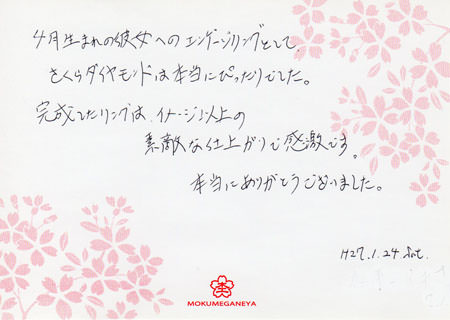 4月生まれの彼女へのエンゲージリングとして、
さくらダイヤモンドは本当にぴったりでした。
完成したリングは、イメージ以上の
素敵な仕上がりで感激です。
本当にありがとうございました。
H27.1.24 Sat.
MOKUMEGANEYA